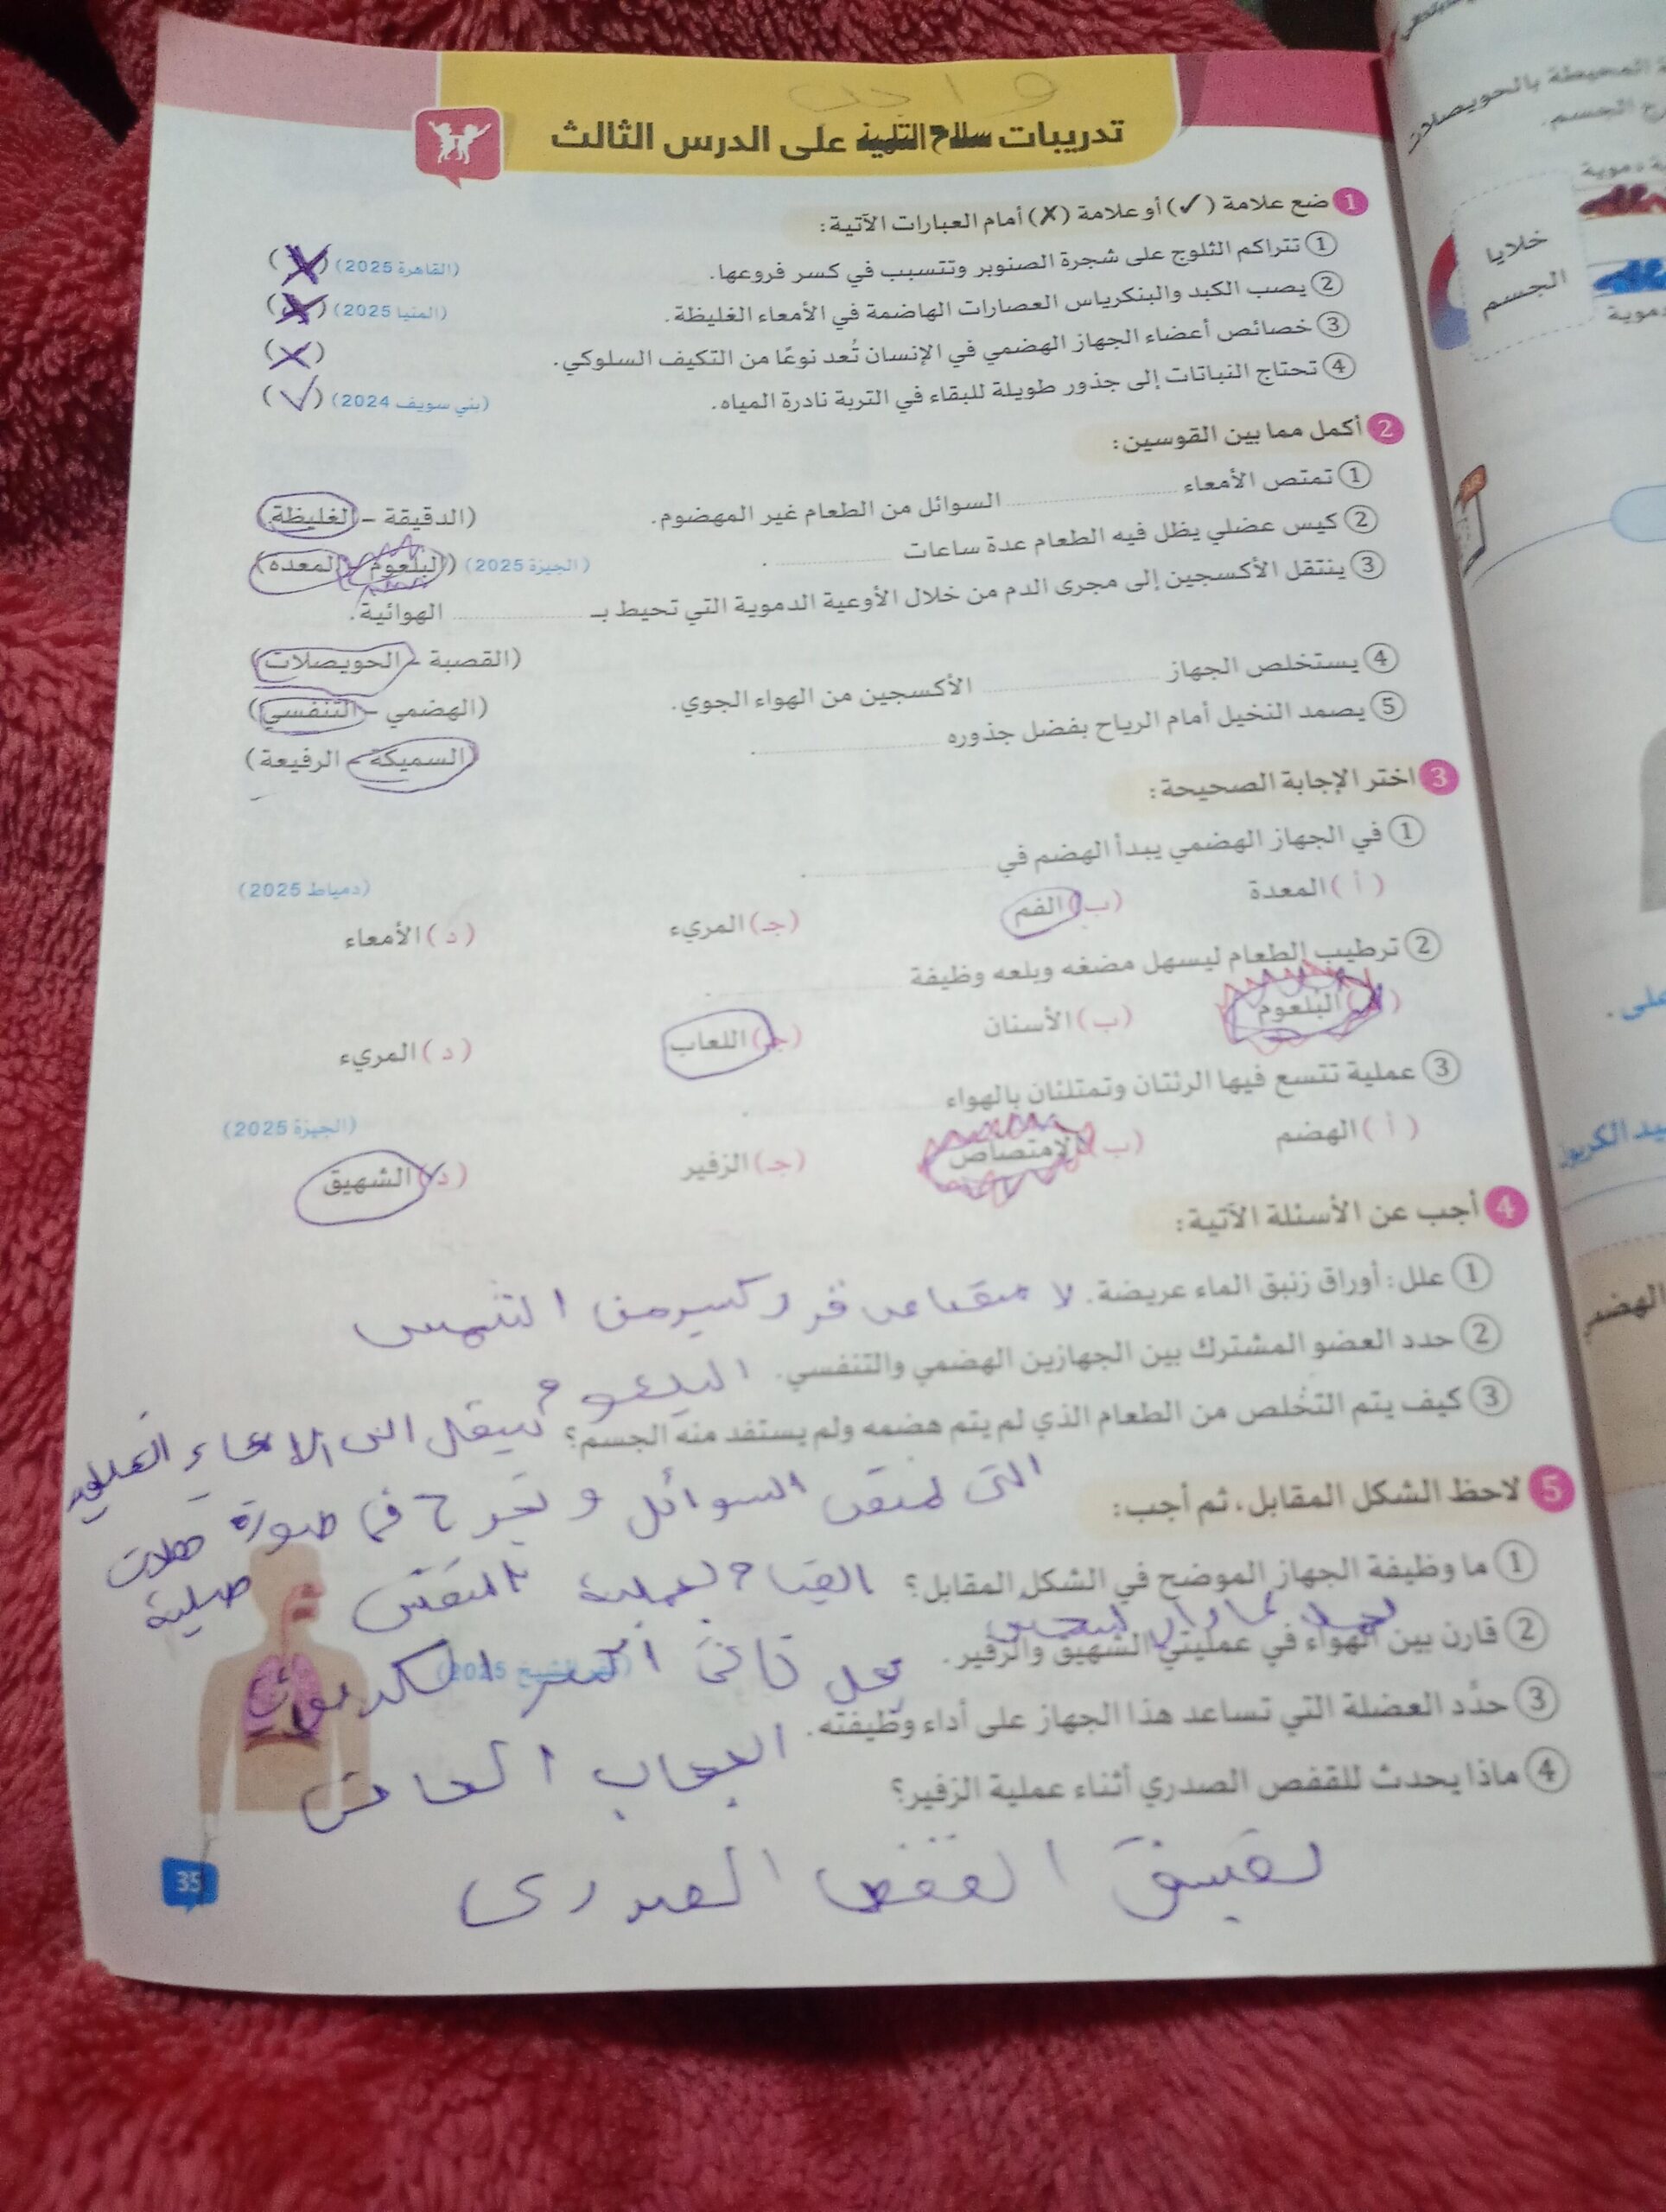 واجب
تدريبات سلاح التلميذ على الدرس الثالث
1 ضع علامة (✓) أو علامة (✗) أمام العبارات الآتية:
1 تتراكم الثلوج على شجرة الصنوبر وتتسبب في كسر فروعها. (القاهرة 2025) (✗)
2 يصب الكبد والبنكرياس العصارات الهاضمة في الأمعاء الغليظة. (المنيا 2025) (✗)
3 خصائص أعضاء الجهاز الهضمي في الإنسان تُعد نوعًا من التكيف السلوكي. (✗)
4 تحتاج النباتات إلى جذور طويلة للبقاء في التربة نادرة المياه. (بني سويف 2024) (✓)
2 أكمل مما بين القوسين:
1 تمتص الأمعاء ........ السوائل من الطعام غير المهضوم. (الدقيقة - الغليظة)
2 كيس عضلي يظل فيه الطعام عدة ساعات ........ . (الجيزة 2025) (البلعوم - المعدة)
3 ينتقل الأكسجين إلى مجرى الدم من خلال الأوعية الدموية التي تحيط بـ ........ الهوائية.
(القصبة - الحويصلات)
4 يستخلص الجهاز ........ الأكسجين من الهواء الجوي. (الهضمي - التنفسي)
5 يصمد النخيل أمام الرياح بفضل جذوره ........ . (السميكة - الرفيعة)
3 اختر الإجابة الصحيحة:
1 في الجهاز الهضمي يبدأ الهضم في ........ . (دمياط 2025)
(أ) المعدة (ب) الفم (جـ) المريء (د) الأمعاء
2 ترطيب الطعام ليسهل مضغه وبلعه وظيفة ........ .
(أ) البلعوم (ب) الأسنان (جـ) اللعاب (د) المريء
3 عملية تتسع فيها الرئتان وتمتلئان بالهواء ........ . (الجيزة 2025)
(أ) الهضم (ب) الامتصاص (جـ) الزفير (د) الشهيق
4 أجب عن الأسئلة الآتية:
1 علل: أوراق زنبق الماء عريضة. من الشمس
2 حدد العضو المشترك بين الجهازين الهضمي والتنفسي. البلعوم
3 كيف يتم التخلص من الطعام الذي لم يتم هضمه ولم يستفد منه الجسم؟ ينتقل الى الامعاء الغليظة
التى تمتص السوائل و تخرج فى صورة فضلات
صلبة
5 لاحظ الشكل المقابل، ثم أجب:
1 ما وظيفة الجهاز الموضح في الشكل المقابل؟ القيام بعملية التنفس
2 قارن بين الهواء في عمليتي الشهيق والزفير. (كفر الشيخ 2025)
3 حدِّد العضلة التي تساعد هذا الجهاز على أداء وظيفته. الحجاب الحاجز
4 ماذا يحدث للقفص الصدري أثناء عملية الزفير؟
يضيق القفص الصدرى
35
المحيطة بالحويصلات
الجسم.
خلايا
الجسم
على.
الهضم